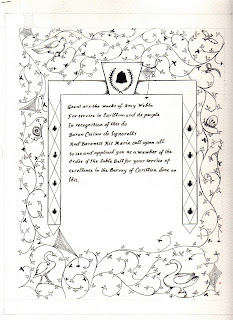 Great are the works of Amy Webbe
For service to Carillion and its people
In recognition of this do
Baron Cusino de Signorelli
And Baroness Kis Maria, call upon all
to see and applaud you as a member of the
Order of the Sable Bell for your service of
excellence to the Barony of Carillion done on
this,